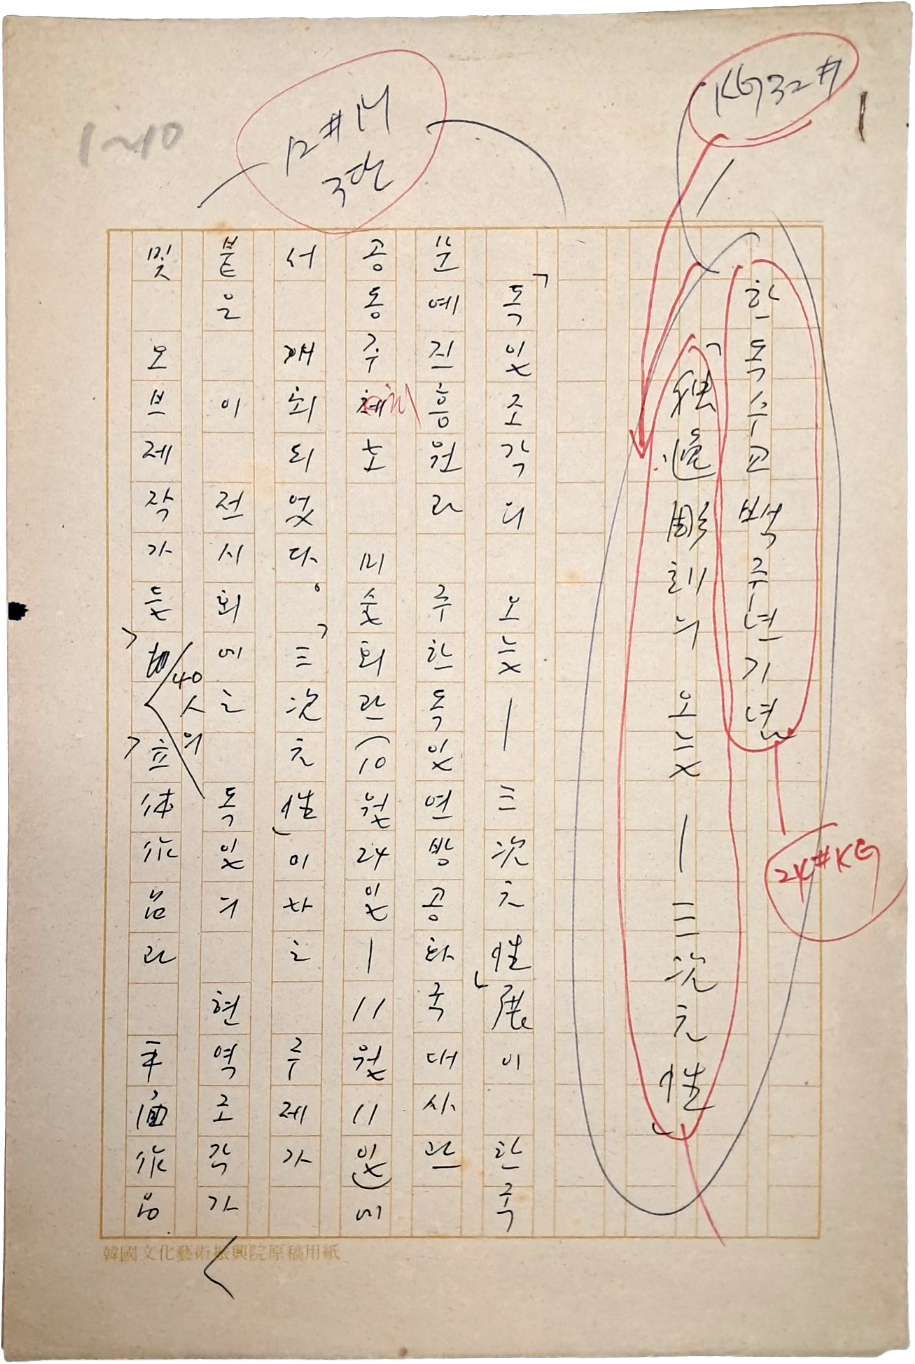 1~10
3단
KG32#
1
한독수교백주년기념
24#KG
「独逸彫刻의 오늘 — 三次元性」
「독일조각의 오늘 — 三次元性」展이 한국
문예진흥원과 주한독일연방공화국대사관
공동주최로 미술회관(10월24일—11월11일)에
서 개최되었다. 「三次元性」이라는 주제가
붙은 이 전시회에는 독일의 현역조각가
및 오브제작가들 40人의 立体作品과 平面作品
韓國文化藝術振興院原稿用紙